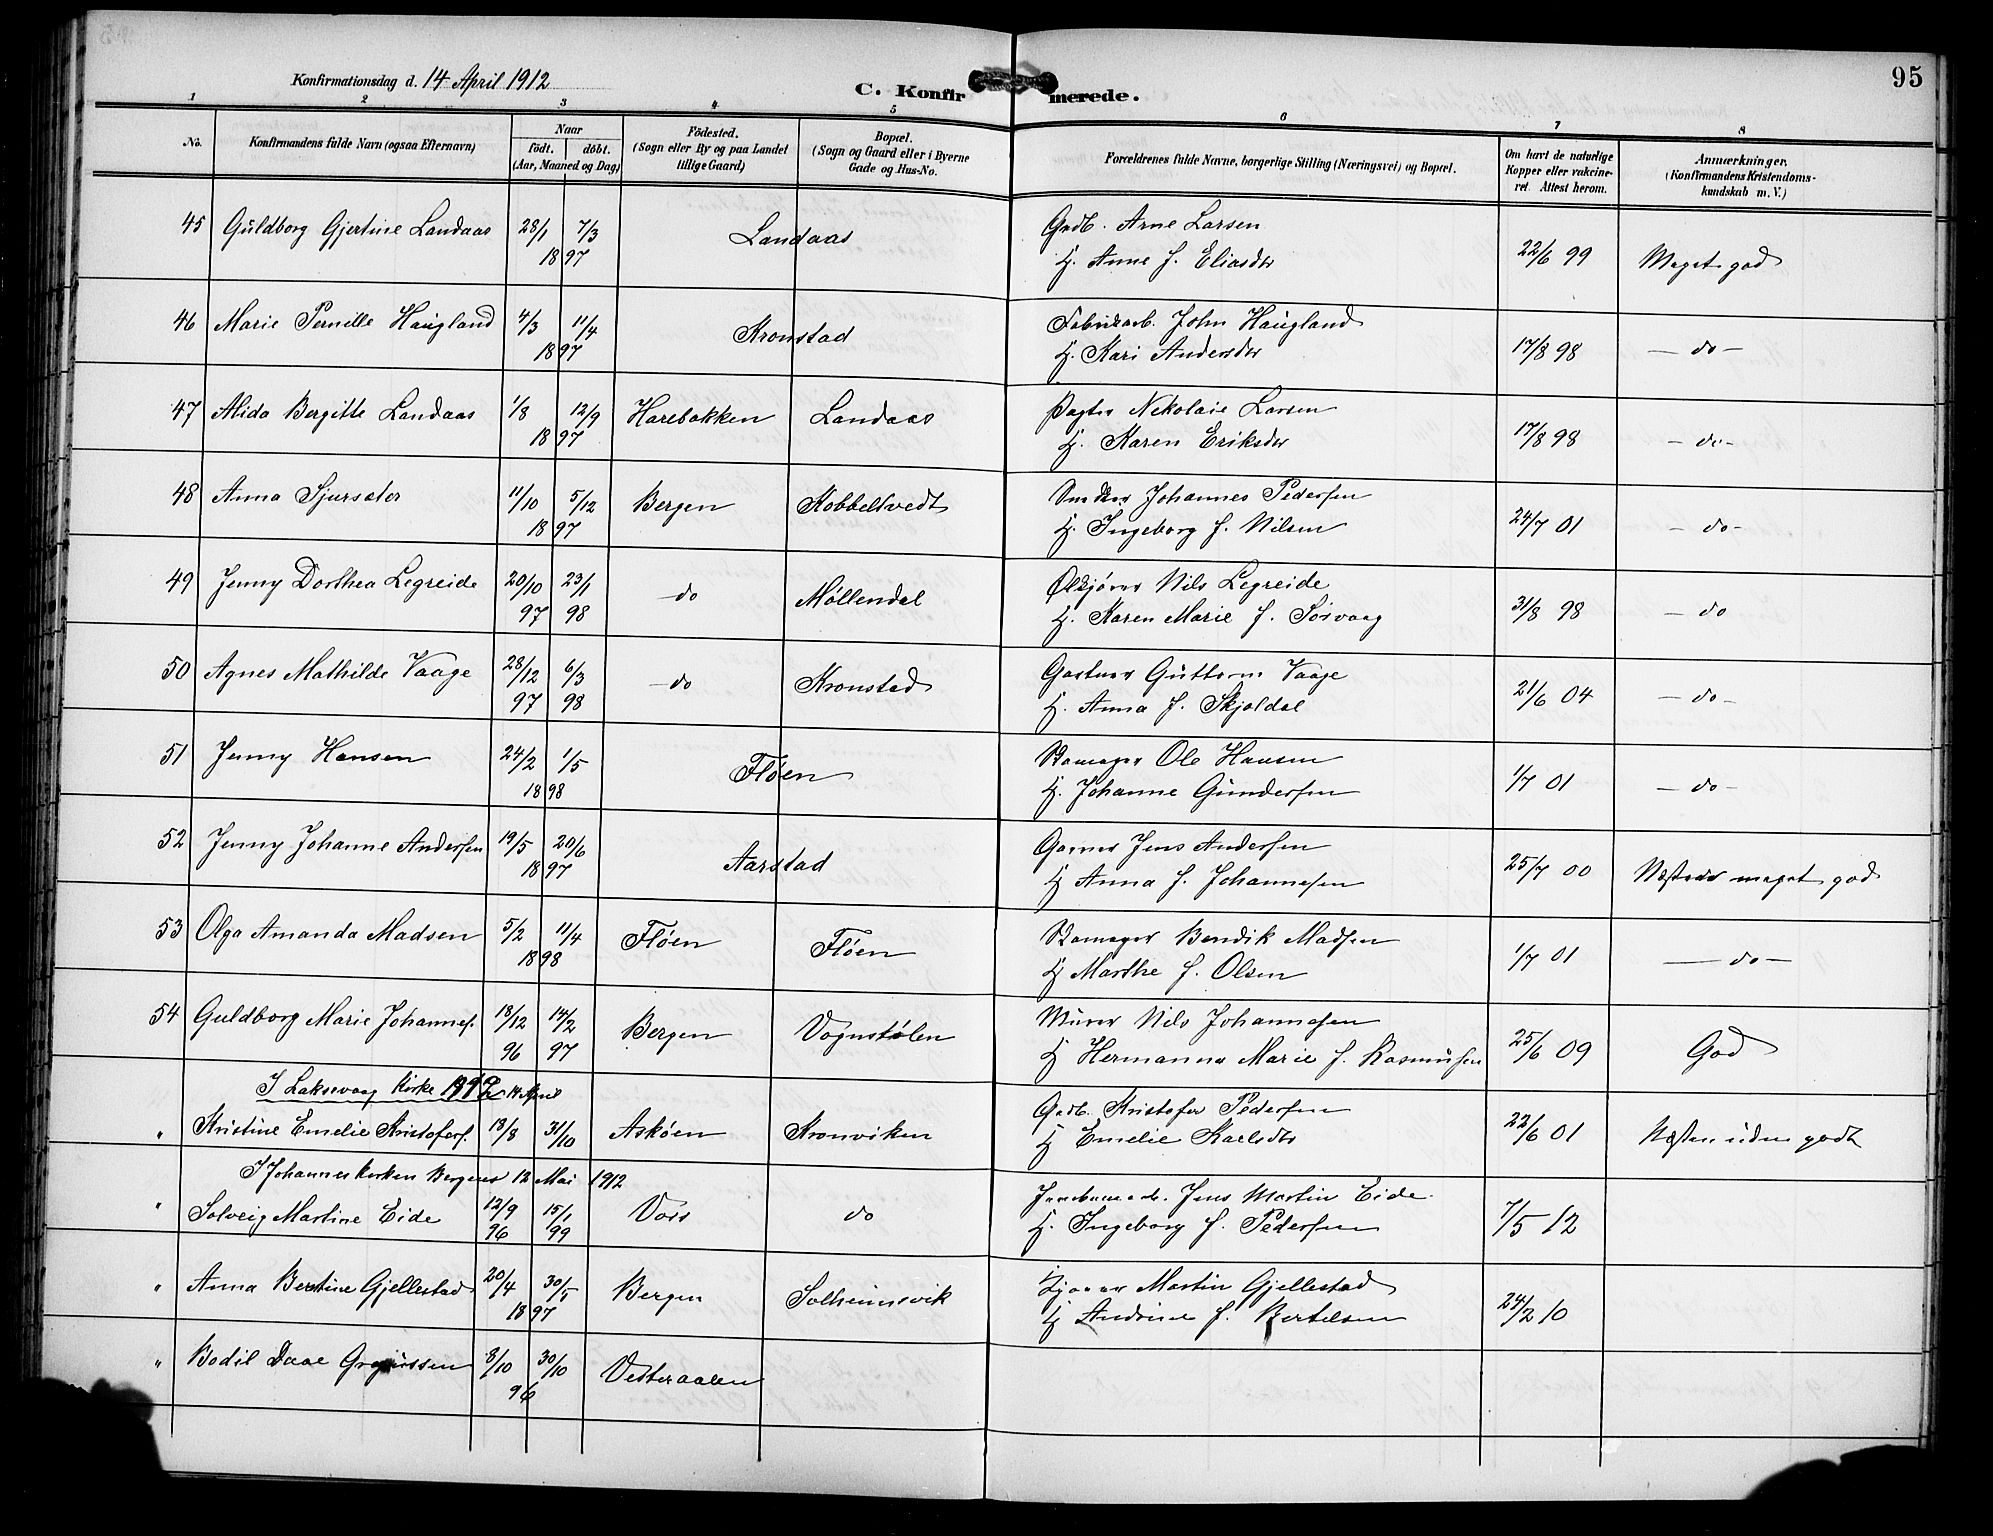 95
Konfirmationsdag d. 14 April 1912
C. Konfirmerede.
1 2 3 4 5 6 7 8
No. Konfirmandens fulde Navn (ogsaa Efternavn) Naar födt. döbt. (Aar, Maaned og Dag) Födested. (Sogn eller By og paa Landet tillige Gaard) Bopæl. (Sogn og Gaard eller i Byerne Gade og Hus-No. Forældrenes fulde Navne, borgerlige Stilling (Næringsvei) og Bopæl. Om havt de naturlige Kopper eller vakcineret. Attest herom. Anmærkninger. (Konfirmandens Kristendomskundskab m. V.)
45 Guldborg Gjertine Landaas 28/1 7/3 1897 Landaas Gdb. Arne Larsen
H. Anne f. Eliasdtr 22/6 99 Meget god
46 Marie Pernille Haugland 4/3 11/4 1897 Kronstad Fabrikarb. John Haugland
H. Kari Andersdtr 17/8 98 — do —
47 Alida Bergitte Landaas 1/8 12/9 1897 Harebakken Landaas Pagter Nikolaie Larsen
H. Karen Eriksdtr 17/8 98 — do —
48 Anna Sjursæter 11/10 5/12 1897 Bergen Kobbeltvedt Snedker Johannes Pedersen
H. Ingeborg f. Nilsen 24/7 01 — do —
49 Jenny Dorthea Legreide 20/10 97 23/1 98 — do Møllendal Ølkjører Nils Legreide
H. Karen Marie f. Sørvaag 31/8 98 — do
50 Agnes Mathilde Vaage 28/12 97 6/3 98 — do Kronstad Gartner Guttorm Vaage
H. Anna f. Skjoldal 21/6 04 — do —
51 Jenny Hansen 24/2 1/5 1898 Fløen Skomager Ole Hansen
H. Johanne Gundersen 1/7 01 — do —
52 Jenny Johanne Andersen 19/5 20/6 1897 Aarstad Garver Jens Andersen
H Anna f. Johannesen 25/7 00 Næsten meget god
53 Olga Amanda Madsen 5/2 11/4 1898 Fløen Fløen Skomager Bendik Madsen
H Marthe f. Olsen 1/7 01 — do —
54 Guldborg Marie Johannes. 18/12 96 14/2 97 Bergen Vognstølen Murer Nils Johannesen
H Hermanna Marie f. Rasmussen 25/6 09 God
I Laksevaag Kirke 1912 14 April
" Kristine Emelie Kristofers. 18/8 31/10 Askøen Kronviken Gadb. Kristofer Pedersen
H Emelie Karlsdtr 22/6 01 Næsten uden godt
I Johanneskirken Bergen 12 Mai 1912
" Solveig Martine Eide 12/9 96 15/1 99 Voss do Jernbanearb. Jens Martin Eide.
H. Ingeborg f. Pedersen 7/5 12
" Anna Bertine Gjellestad 20/4 30/5 1897 Bergen Solheimsvik Martin Gjellestad
H Andrine f. Bertelsen 24/2 10
" Bodil Daae Gregussen 8/10 30/10 96 Vesteraalen